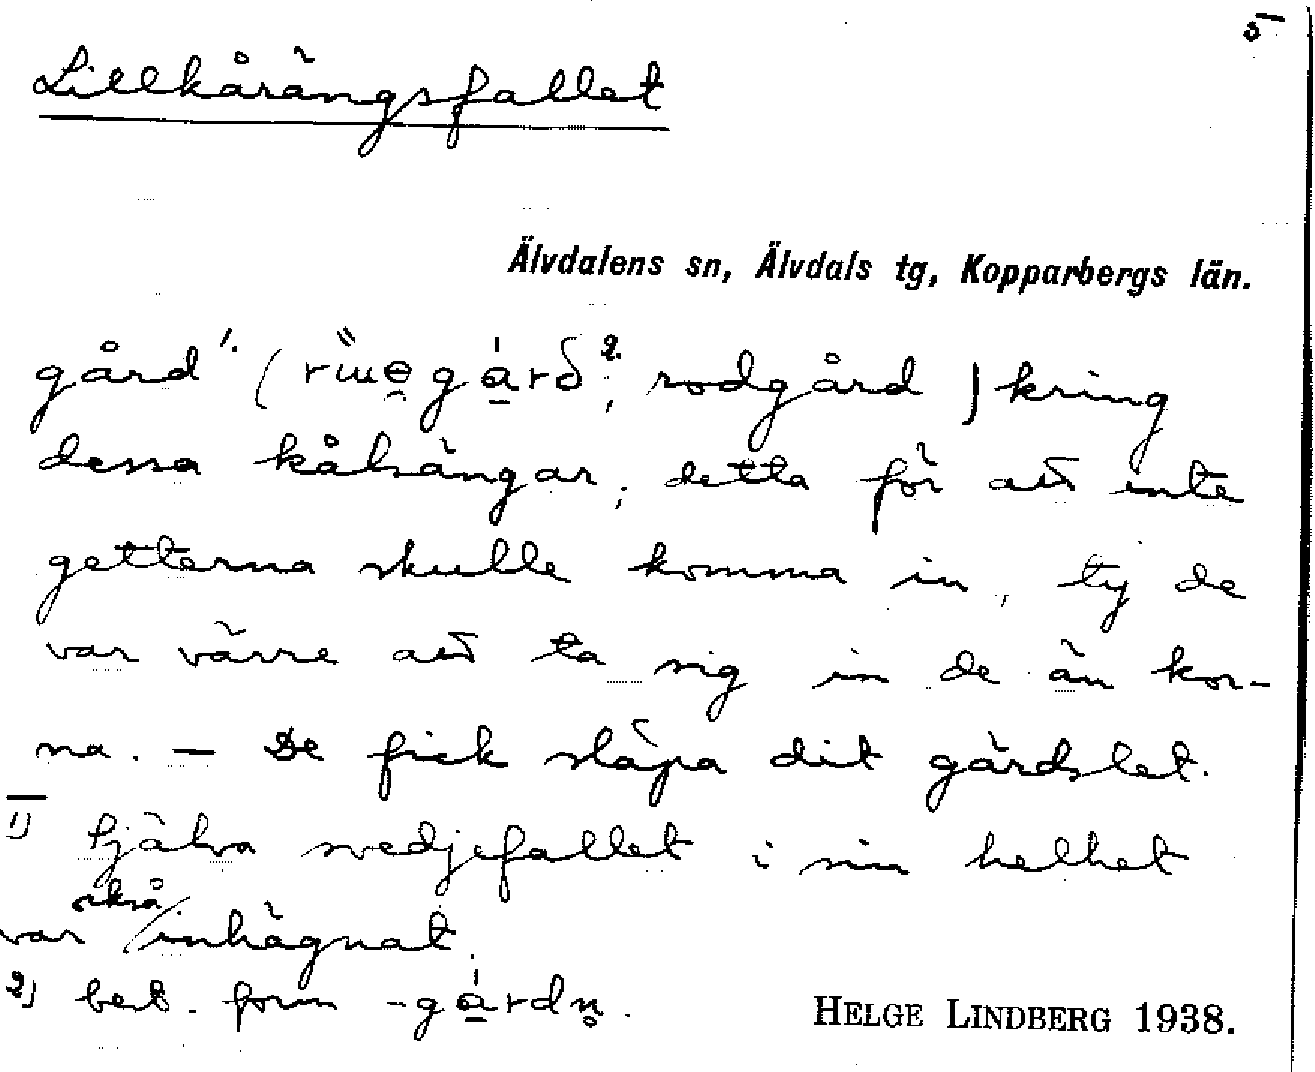 5
Lillkårängsfallet
Älvdalens sn, Älvdals tg, Kopparbergs län.
gård 1. ( 2. ; rodgård ) kring
dessa kålsängar; detta för att inte
getterna skulle komma in, ty de
var värre att ta sig in de än kor-
na. — De fick släpa dit gärdslet.
1) Själva svedjefallet i sin helhet
också
var inhägnat.
2) best. form -gá̱rdn̥.
HELGE LINDBERG 1938.